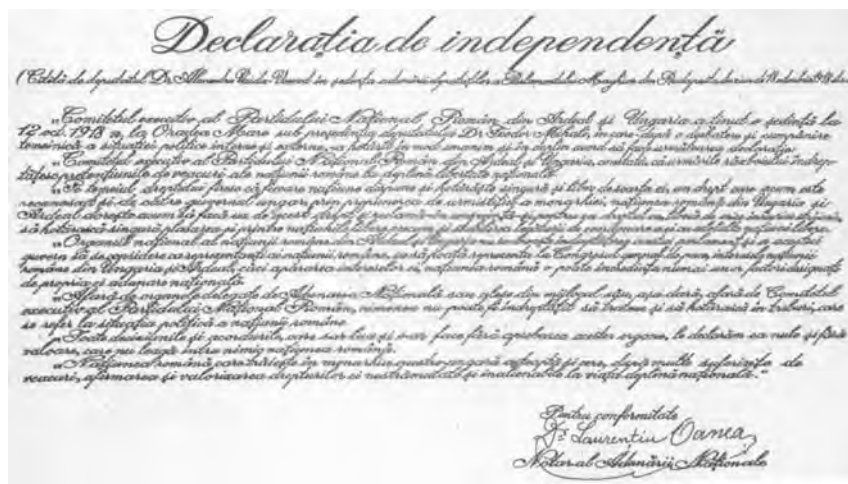 Declarația de independență
(Citită de deputatul Dr. Alexandru Vaida-Voevod în ședința
„Comitetul executiv al Partidului Național Român din Ardeal și Ungaria a ținut o ședință la
12 oct. 1918 n. la Oradea Mare sub președinția deputatului Dr. Teodor Mihali, în care după o dezbatere și cumpănire
temeinică a situației politice interne și externe, a hotărît în mod unanim și în deplin acord să facă următoarea declarație:
„Comitetul executiv al Partidului Național Român din Ardeal și Ungaria, constată, că urmările războiului îndrep-
tățesc pretențiunile de veacuri ale națiunii române la deplină libertate națională.
„Pe temeiul dreptului firesc că fiecare națiune dispune și hotărăște singură și liber de soartea ei, un drept care acum este
recunoscut și de către guvernul ungar prin propunerea de armistițiu a monarhiei, națiunea română din Ungaria și
Ardeal dorește acum să facă uz de acest drept și
să hotărască singură plasarea ei printre națiunile libere
„Organul național al națiunii române din
guvern să se considere ca reprezentanți ai națiunii române, să
române din Ungaria și Ardeal, căci apărarea intereselor ei, națiunea română o poate încredința numai unor factori designați
de propria ei adunare națională.
„Afară de organele delegate de Adunarea Națională sau alese din mijlocul său, așa dară, afară de Comitetul
executiv al Partidului Național Român, nimenea nu poate fi îndreptățit să trateze și să hotărască în treburi, care
se refer la situația politică a națiunii române.
„Toate decisiunile și acordurile, care s-ar face fără aprobarea acestor organe, le declarăm ca nule și fără
valoare, care nu leagă întru nimic națiunea română.
„Națiunea română care trăiește în monarhia austro-ungară așteaptă și cere, după multe suferințe de
veacuri, afirmarea și valorizarea drepturilor ei nestrămutate și inalienabile la viața deplină națională."
Pentru conformitate
Dr Laurențiu Oanea
Notarul Adunării Naționale